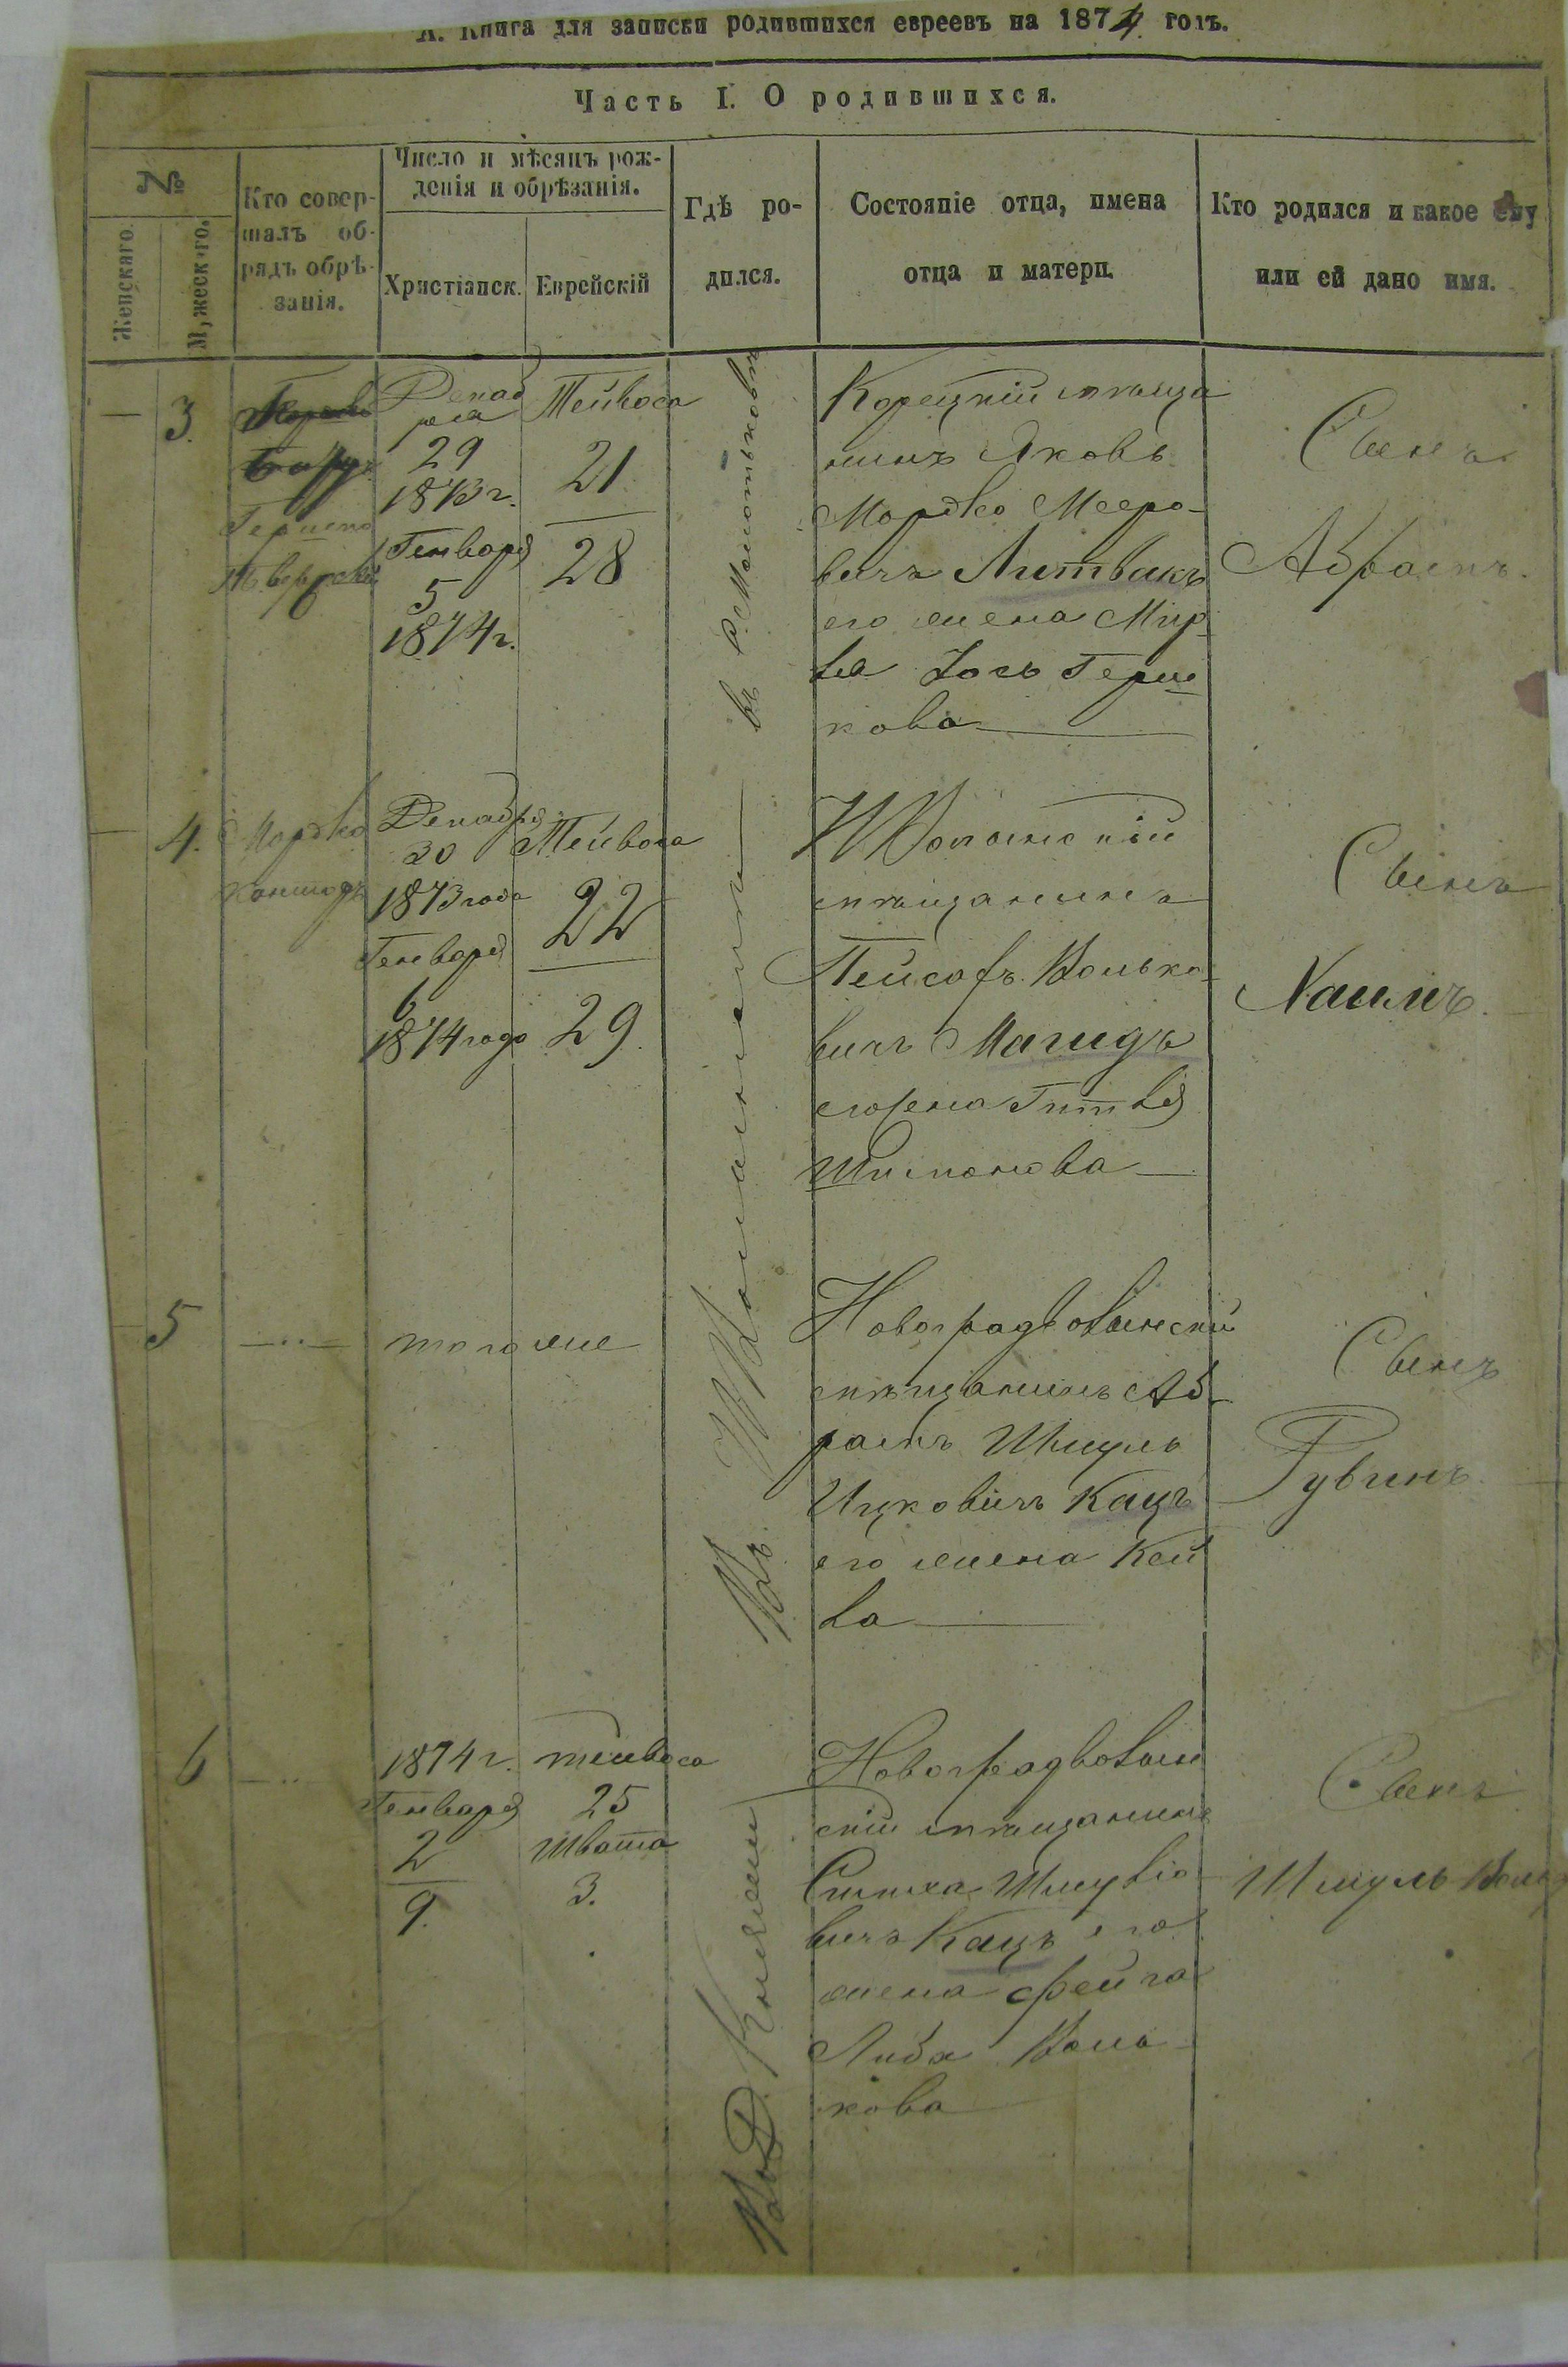 А. Книга для записки родившихся евреевъ на 1874 годъ.
Часть I. О родившихся.
№
Женскаго.
Мужескаго.
Кто совер-
шалъ об-
рядъ обрѣ-
занія.
Число и мѣсяцъ рож-
денія и обрѣзанія.
Христіанск.
Еврейскій
Гдѣ ро-
дился.
Состояніе отца, имена
отца и матери.
Кто родился и какое ему
или ей дано имя.
3.
Декаб
ря
29
1873 г.
Генваря
5
1874 г.
Тейвоса
21
28
въ
Корецкій мѣща
нинъ Яковъ
Мордко Мееро-
вичъ Литвакъ
его жена Мир
ля Дось Герш
кова
Сынъ
Абрамъ.
4.
Мордко
Декабря
30
1873 года
Генваря
6
1874 года
Тейвоса
22
29
мѣщанинъ
Пейсахъ Волько-
вичъ Магидъ
его жена Гитля
Шимонова
Сынъ
Хаимъ.
5
того же
Въ
Новоградволынскій
мѣщанинъ Аб-
рамъ Шмуль
Ицковичъ Кацъ
его жена Кей
ла
Сынъ
Рувинъ
6
1874 г.
Генваря
2
9.
тейвоса
25
Швата
3.
Новоградволын
скій мѣщанинъ
Симха Шмулiо
вичъ Кацъ его
жена Фейга
Либа Воль
кова
Сынъ
Шмуль